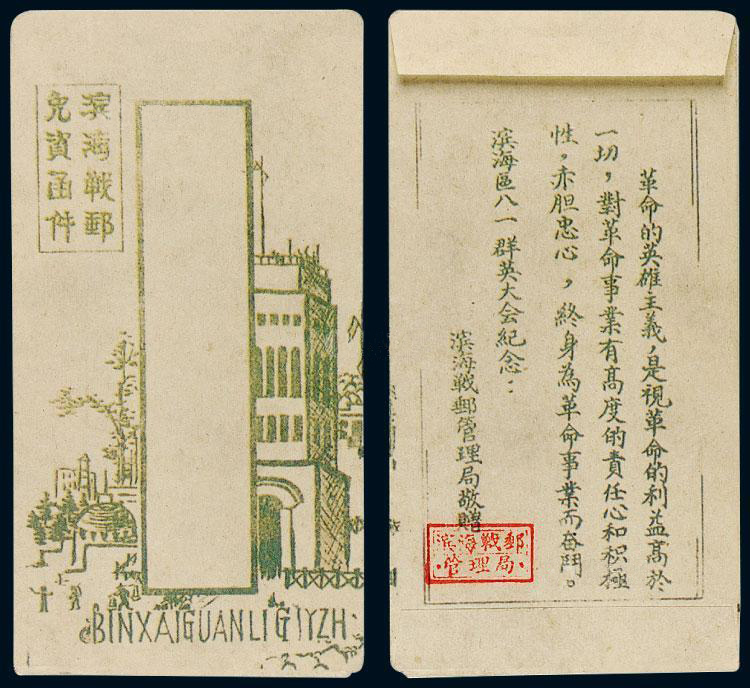 滨海戰郵
免資函件
BINXAIGUANLIGIYZH
革命的英雄主義，是視革命的利益高於
一切，對革命事業有高度的責任心和积極
性，赤胆忠心，終身為革命事業而奋鬥。
滨海區八一群英大会紀念：
滨海戰郵管理局敬贈
滨海戰郵
·管理局·